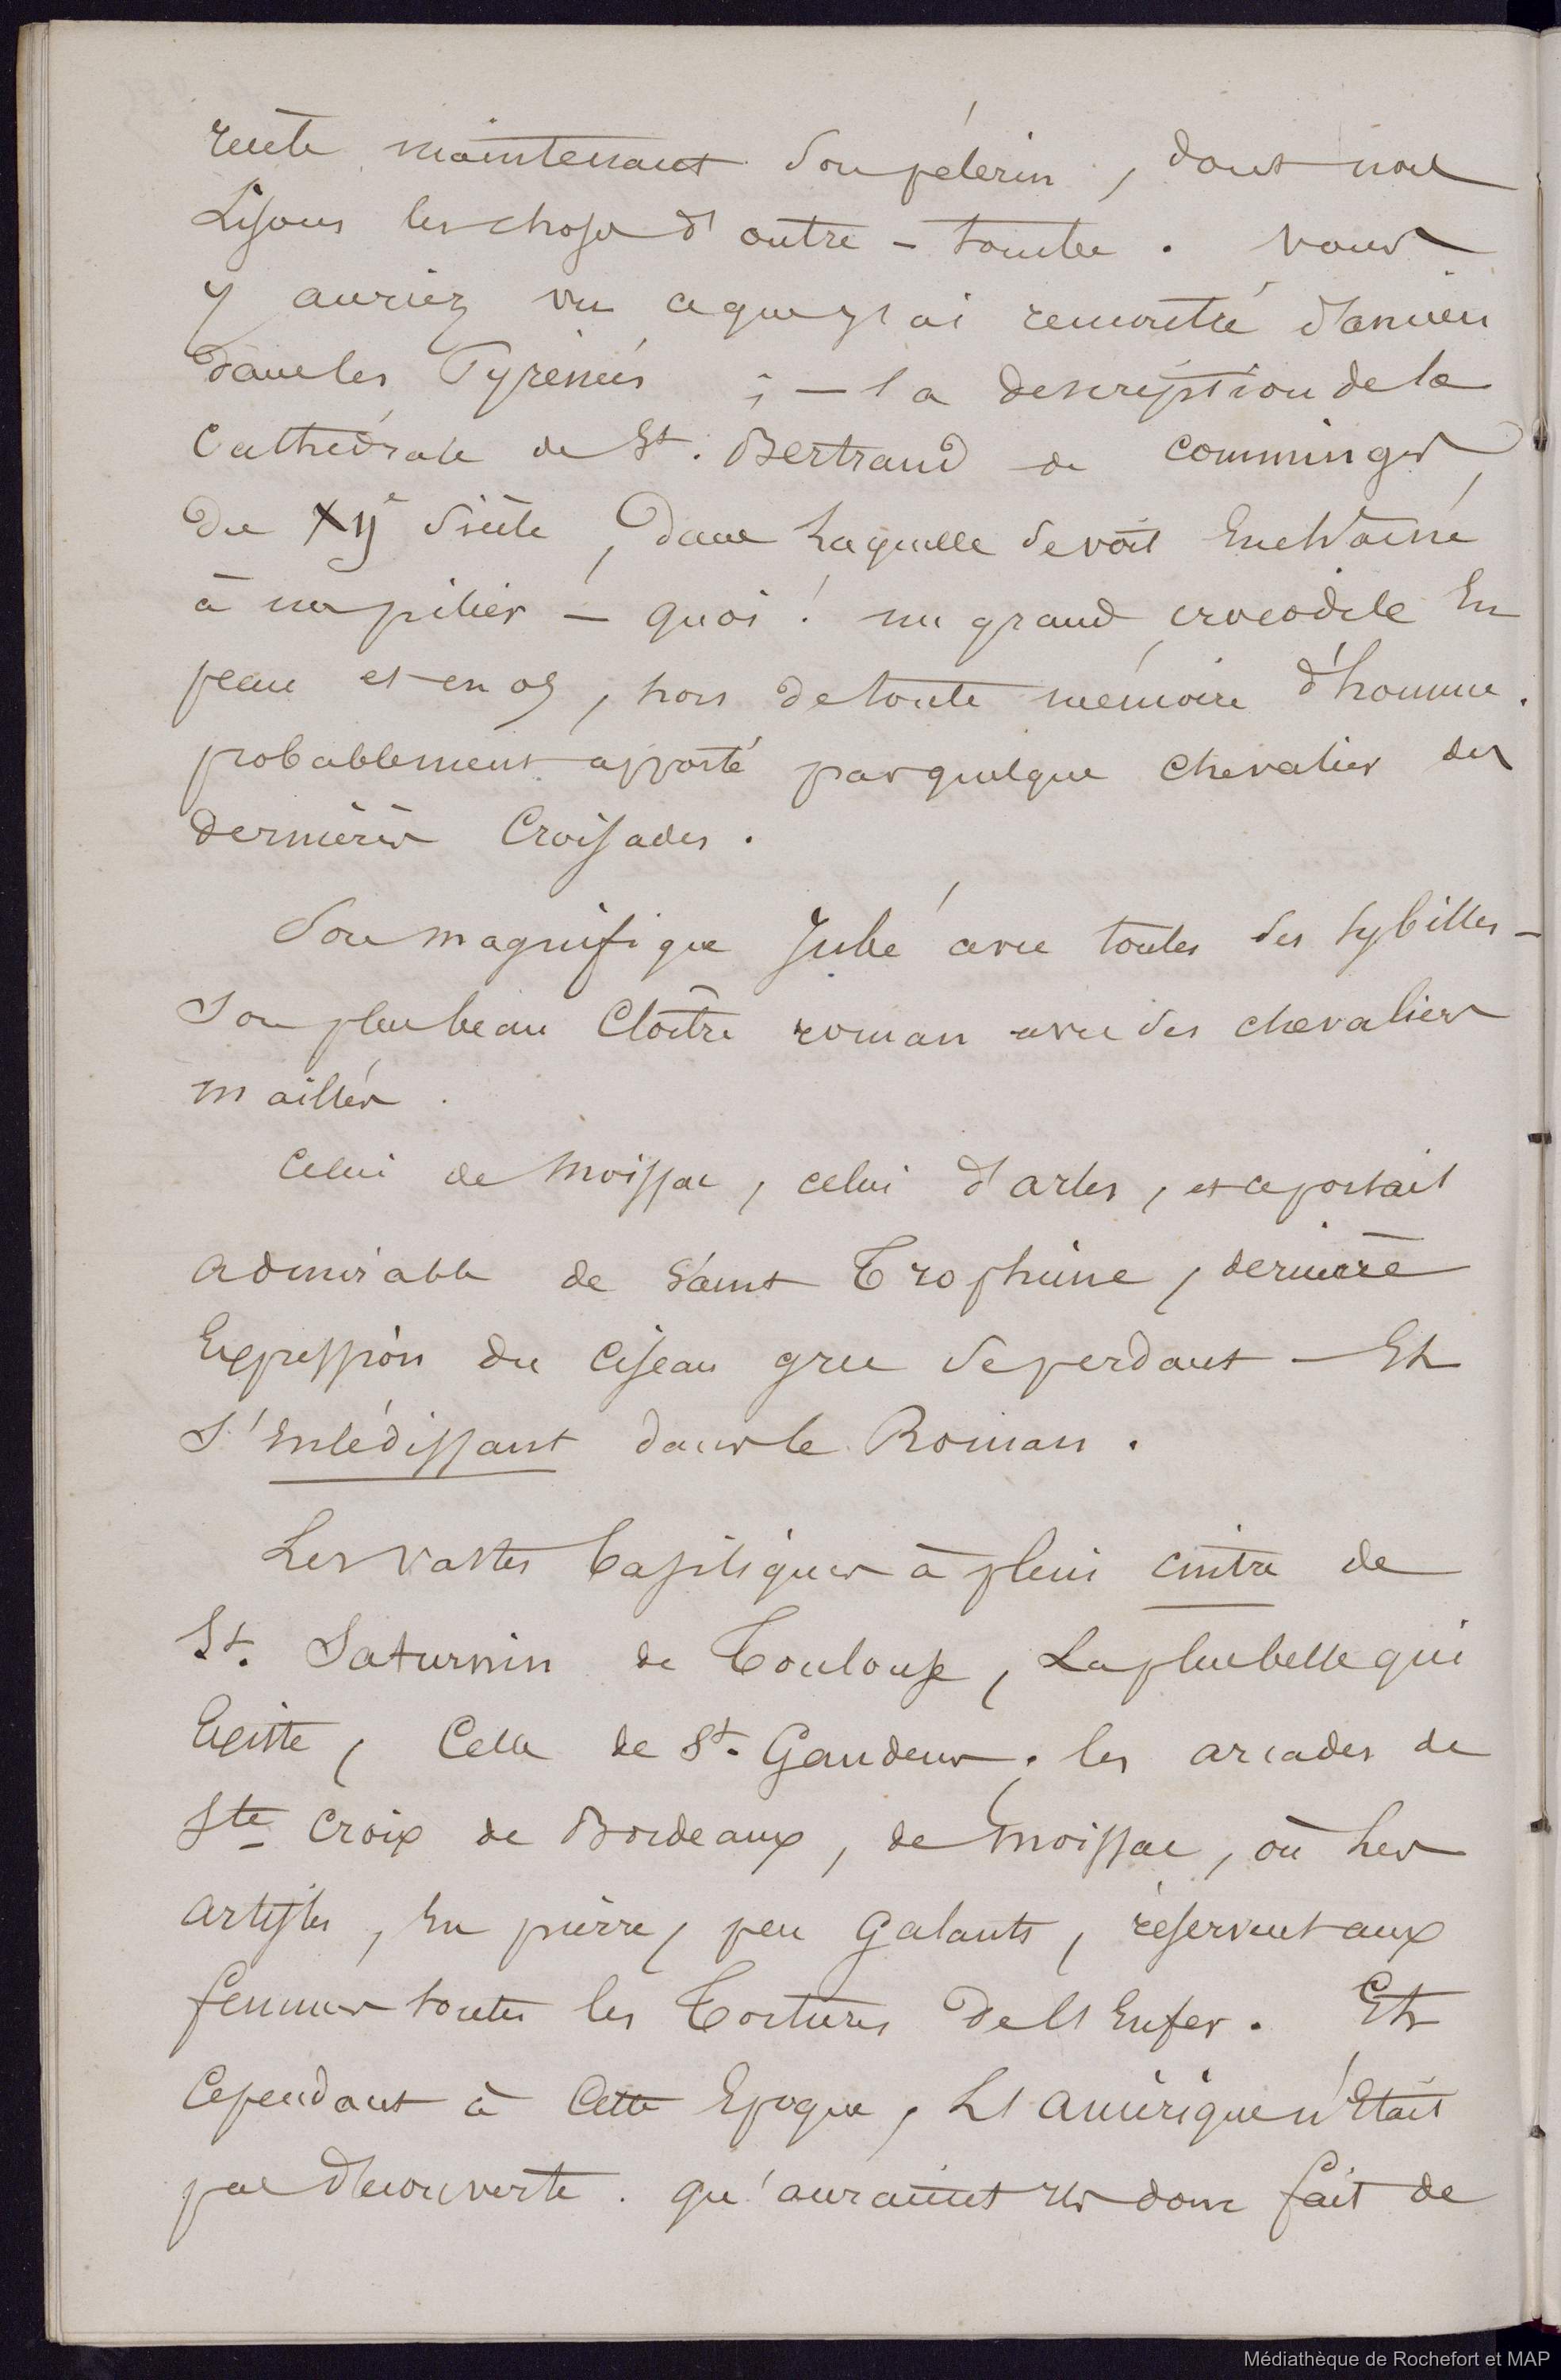 maintenant son pélerin, dont nous
lisons les choses d'outre-tombe. vous
y auriez vu ce que j'ai rencontré d'ancien
dans les Pyrénées ; — la description de la
Cathédrale de St. Bertrand de Comminges,
du XIIe siècle, dans laquelle se voit Enchainé
à un pilier — quoi ! un grand crocodile En
peau et en os, hors de toute mémoire d'homme.
probablement apporté par quelque Chevalier des
dernières Croisades.
Son magnifique Jubé avec toutes ses sybilles —
Son plus beau Cloître roman avec ses chevaliers
maillés.
Celui de Moissac, celui d'arles, et ce portail
admirable de Saint Trophime, dernière
Expression du Ciseau grec se perdant — Et
s'enlédissant dans le Roman.
Les vastes basiliques à plein cintre de
St. Saturnin de Toulouse, La plus belle qui
Existe, Celle de St. Gaudens ; les arcades de
Ste Croix de Bordeaux, de Moissac, où les
artistes, En pierre, peu Galants, réservent aux
femmes toutes les Tortures de l'Enfer. Et
Cependant à Cette Epoque, L'amérique n'Etait
pas découverte. qu'auraient ils donc fait de
Médiathèque de Rochefort et MAP